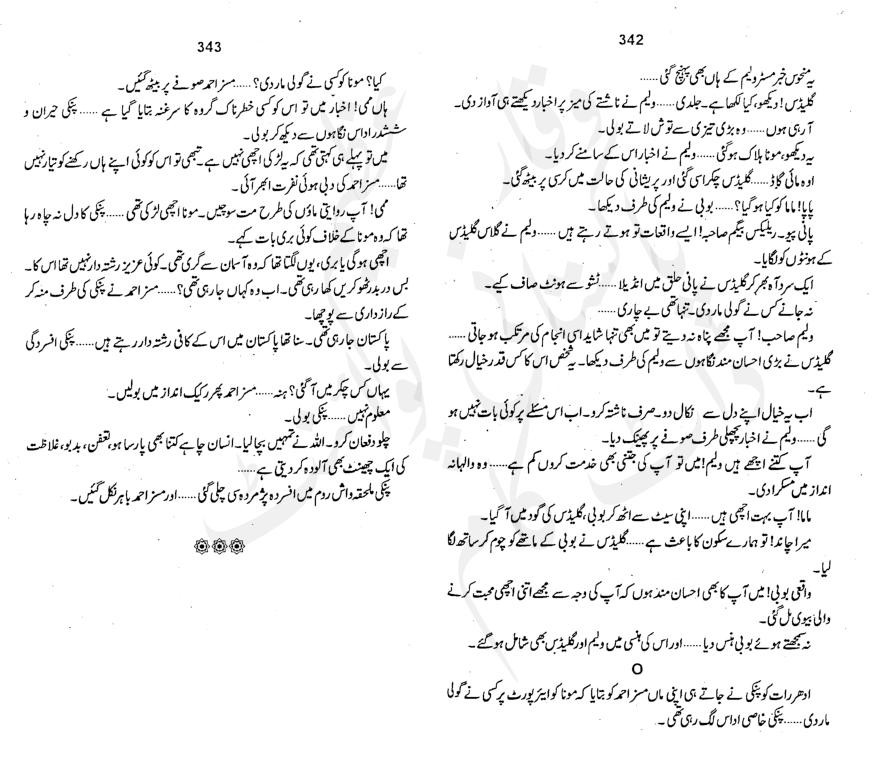 342
یہ منحوس خبر مسٹر ولیم کے ہاں بھی پہنچ گئی ......
گلیڈس! دیکھو، کیا لکھا ہے۔ جلدی ...... ولیم نے ناشتے کی میز پر اخبار دیکھتے ہی آواز دی۔
آ رہی ہوں ...... وہ بڑی تیزی سے توش لاتے بولی۔
یہ دیکھو، مونا ہلاک ہو گئی ...... ولیم نے اخبار اس کے سامنے کر دیا۔
اوہ مائی گاڈ ...... گلیڈس چکرا سی گئی اور پریشانی کی حالت میں کرسی پر بیٹھ گئی۔
پاپا! ماما کو کیا ہو گیا؟ ...... بوبی نے ولیم کی طرف دیکھا۔
پانی پیو۔ ریلیکس بیگم صاحبہ! ایسے واقعات تو ہوتے رہتے ہیں ...... ولیم نے گلاس گلیڈس
کے ہونٹوں کو لگایا۔
ایک سرد آہ بھر کر گلیڈس نے پانی حلق میں انڈیلا ...... ٹشو سے ہونٹ صاف کیے۔
نہ جانے کس نے گولی مار دی۔ تنہا تھی بے چاری ......
ولیم صاحب! آپ مجھے پناہ نہ دیتے تو میں بھی تنہا شاید اسی انجام کی مرتکب ہو جاتی ......
گلیڈس نے بڑی احسان مند نگاہوں سے ولیم کی طرف دیکھا۔ یہ شخص اس کا کس قدر خیال رکھتا
ہے۔
اب یہ خیال اپنے دل سے نکال دو۔ صرف ناشتہ کرو۔ اب اس مسئلے پر کوئی بات نہیں ہو
گی ...... ولیم نے اخبار پچھلی طرف صوفے پر پھینک دیا۔
آپ کتنے اچھے ہیں ولیم! میں تو آپ کی جتنی بھی خدمت کروں کم ہے ...... وہ والہانہ
انداز میں مسکرا دی۔
ماما! آپ بہت اچھی ہیں ...... اپنی سیٹ سے اٹھ کر بوبی، گلیڈس کی گود میں آ گیا۔
میرا چاند! تو ہمارے سکون کا باعث ہے ...... گلیڈس نے بوبی کے ماتھے کو چوم کر ساتھ لگا
لیا۔
واقعی بوبی! میں آپ کا بھی احسان مند ہوں کہ آپ کی وجہ سے مجھے اتنی اچھی محبت کرنے
والی بیوی مل گئی۔
نہ سمجھتے ہوئے بوبی ہنس دیا ...... اور اس کی ہنسی میں ولیم اور گلیڈس بھی شامل ہو گئے۔
O
ادھر رات کو پنکی نے جاتے ہی اپنی ماں مسز احمد کو بتایا کہ مونا کو ایئرپورٹ پر کسی نے گولی
مار دی ...... پنکی خاصی اداس لگ رہی تھی۔
343
کیا؟ مونا کو کسی نے گولی مار دی؟ ...... مسز احمد صوفے پر بیٹھ گئیں۔
ہاں ممی! اخبار میں تو اس کو کسی خطرناک گروہ کا سرغنہ بتایا گیا ہے ...... پنکی حیران و
ششدر اداس نگاہوں سے دیکھ کر بولی۔
میں تو پہلے ہی کہتی تھی کہ یہ لڑکی اچھی نہیں ہے۔ تبھی تو اس کو کوئی اپنے ہاں رکھنے کو تیار نہیں
تھا ...... مسز احمد کی دبی ہوئی نفرت ابھر آئی۔
ممی! آپ روایتی ماؤں کی طرح مت سوچیں۔ مونا اچھی لڑکی تھی ...... پنکی کا دل نہ چاہ رہا
تھا کہ وہ مونا کے خلاف کوئی بری بات کہے۔
اچھی ہو گی یا بری، یوں لگتا تھا کہ وہ آسمان سے گری تھی۔ کوئی عزیز رشتہ دار نہیں تھا اس کا۔
بس در بدر ٹھوکریں کھا رہی تھی۔ اب وہ کہاں جا رہی تھی؟ ...... مسز احمد نے پنکی کی طرف منہ کر
کے رازداری سے پوچھا۔
پاکستان جا رہی تھی۔ سنا تھا پاکستان میں اس کے کافی رشتہ دار رہتے ہیں ...... پنکی افسردگی
سے بولی۔
یہاں کس چکر میں آ گئی؟ ہنہ ...... مسز احمد پھر رکیک انداز میں بولیں۔
معلوم نہیں ...... پنکی بولی۔
چلو دفعان کرو۔ اللہ نے تمہیں بچا لیا۔ انسان چاہے کتنا بھی پارسا ہو، تعفن، بدبو، غلاظت
کی ایک چھینٹ بھی آلودہ کر دیتی ہے ......
پنکی ملحقہ واش روم میں افسردہ پژمردہ سی چلی گئی ...... اور مسز احمد باہر نکل گئیں۔